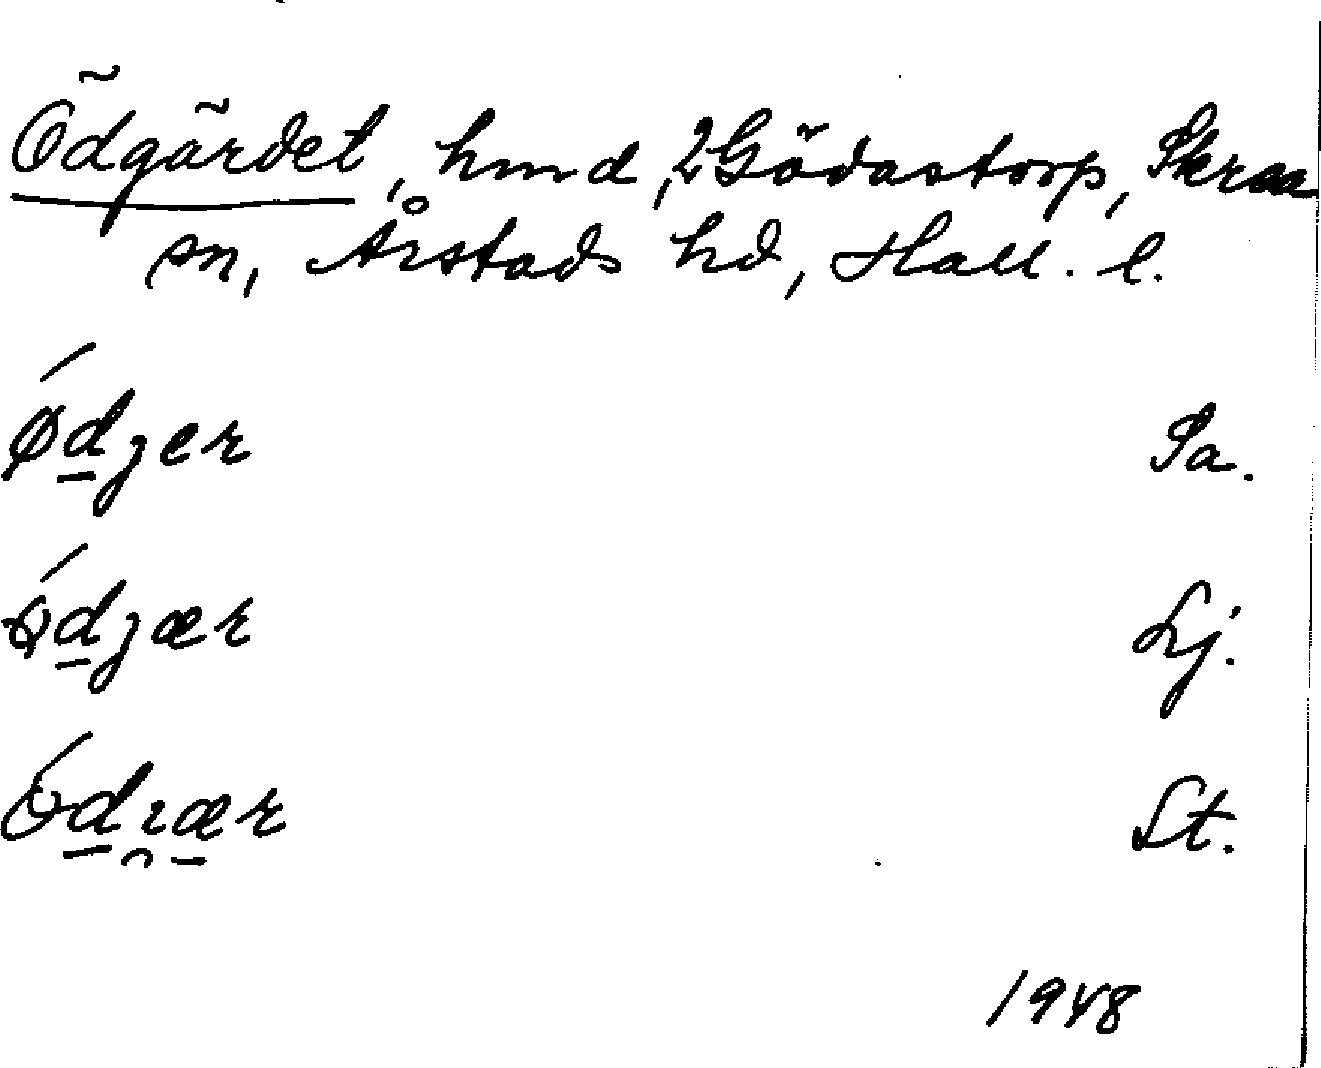 Ödgärdet, hmd, 2 Gödastorp, Skrea
sn, Årstads hd, Hall. l.
Ǿdjer Sa.
Ǿdjær Lj.
Ódıær St.
1948